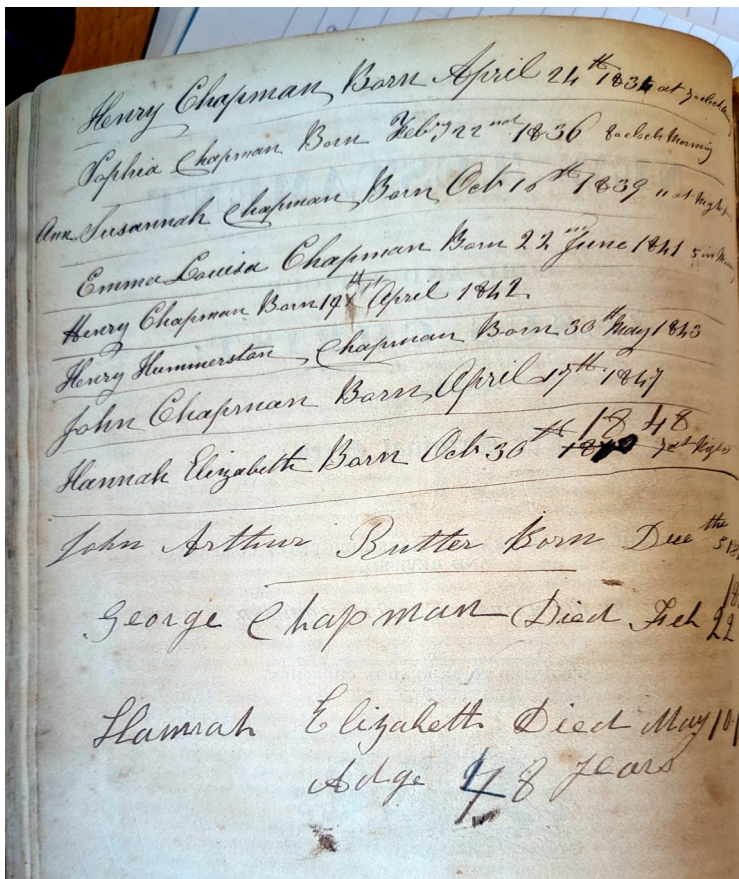 Henry Chapman Born April 24th 1834 at 7 oclock
Sophia Chapman Born Feby 22nd 1836 8 oclock Morning
Ann Susannah Chapman Born Oct 10th 1839 11 at Night
Emma Louisa Chapman Born 22nd June 1841 5 in
Henry Chapman Born 19th April 1842
Henry Hummerston Chapman Born 30th May 1843
John Chapman Born April 17th 1847
Hannah Elizabeth Born Oct 30th 1848 7 at Night
John Arthur Rutter Born Dec the 5 18
George Chapman Died Feb 22 18
Hannah Elizabeth Died May 10
Adge 48 years